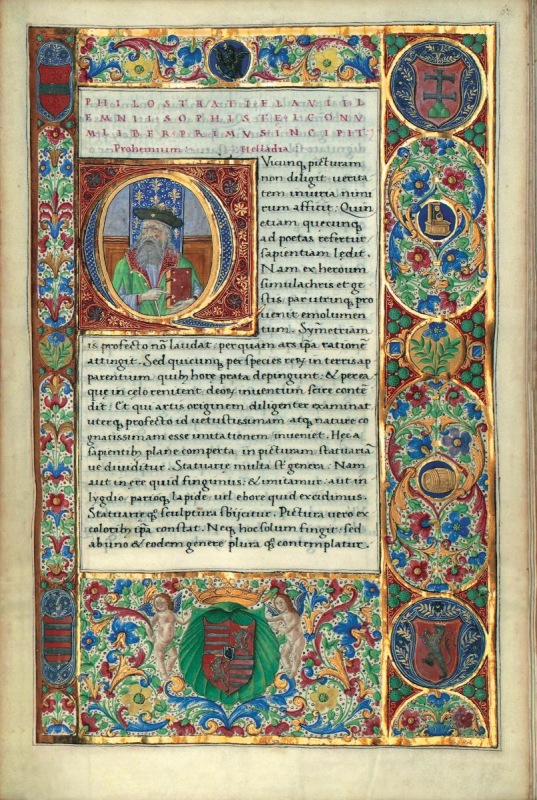 PHILOSTRATI FLAVII L
EMNII SOPHISTE ICONV
M LIBER PRIMVS INCIPIT
Prohemium
QVicunq; picturam
non diligit: uerita
tem iniuria nimi
rum afficit. Quin
etiam quecunq;
ad poetas refertur
sapientiam ledit.
Nam ex heroum
simulachris et ge
stis, par utrinq; pro
uenit emolumen
tum. Symetriam
is profecto nō laudat: per quam ars ip̄a rationē
attingit. Sed quicunq; per species rerꝝ in terris ap
parentium quib; horis prata depingunt: & per ea
que in celo renitent deorꝝ inuentum scire conte
dit: Et qui artis originem diligenter examinat
uterq; profecto id uetustissimam atq; nature co
gnatissimam esse imitationem inueniet. Hec a
sapientib; plane comperta in picturam statuariā
ue diuiditur. Statuarie multa sūt genera: Nam
aut in ere quid fingimus: & imitamur: aut in
lygdio parioq; lapide: uel ebore quid excidimus.
Statuarie q; sculptura sbijcitur. Pictura uero ex
colorib; ip̄a constat. Neq; hoc solum fingit: sed
ab uno & eodem genere plura q; contemplatur.